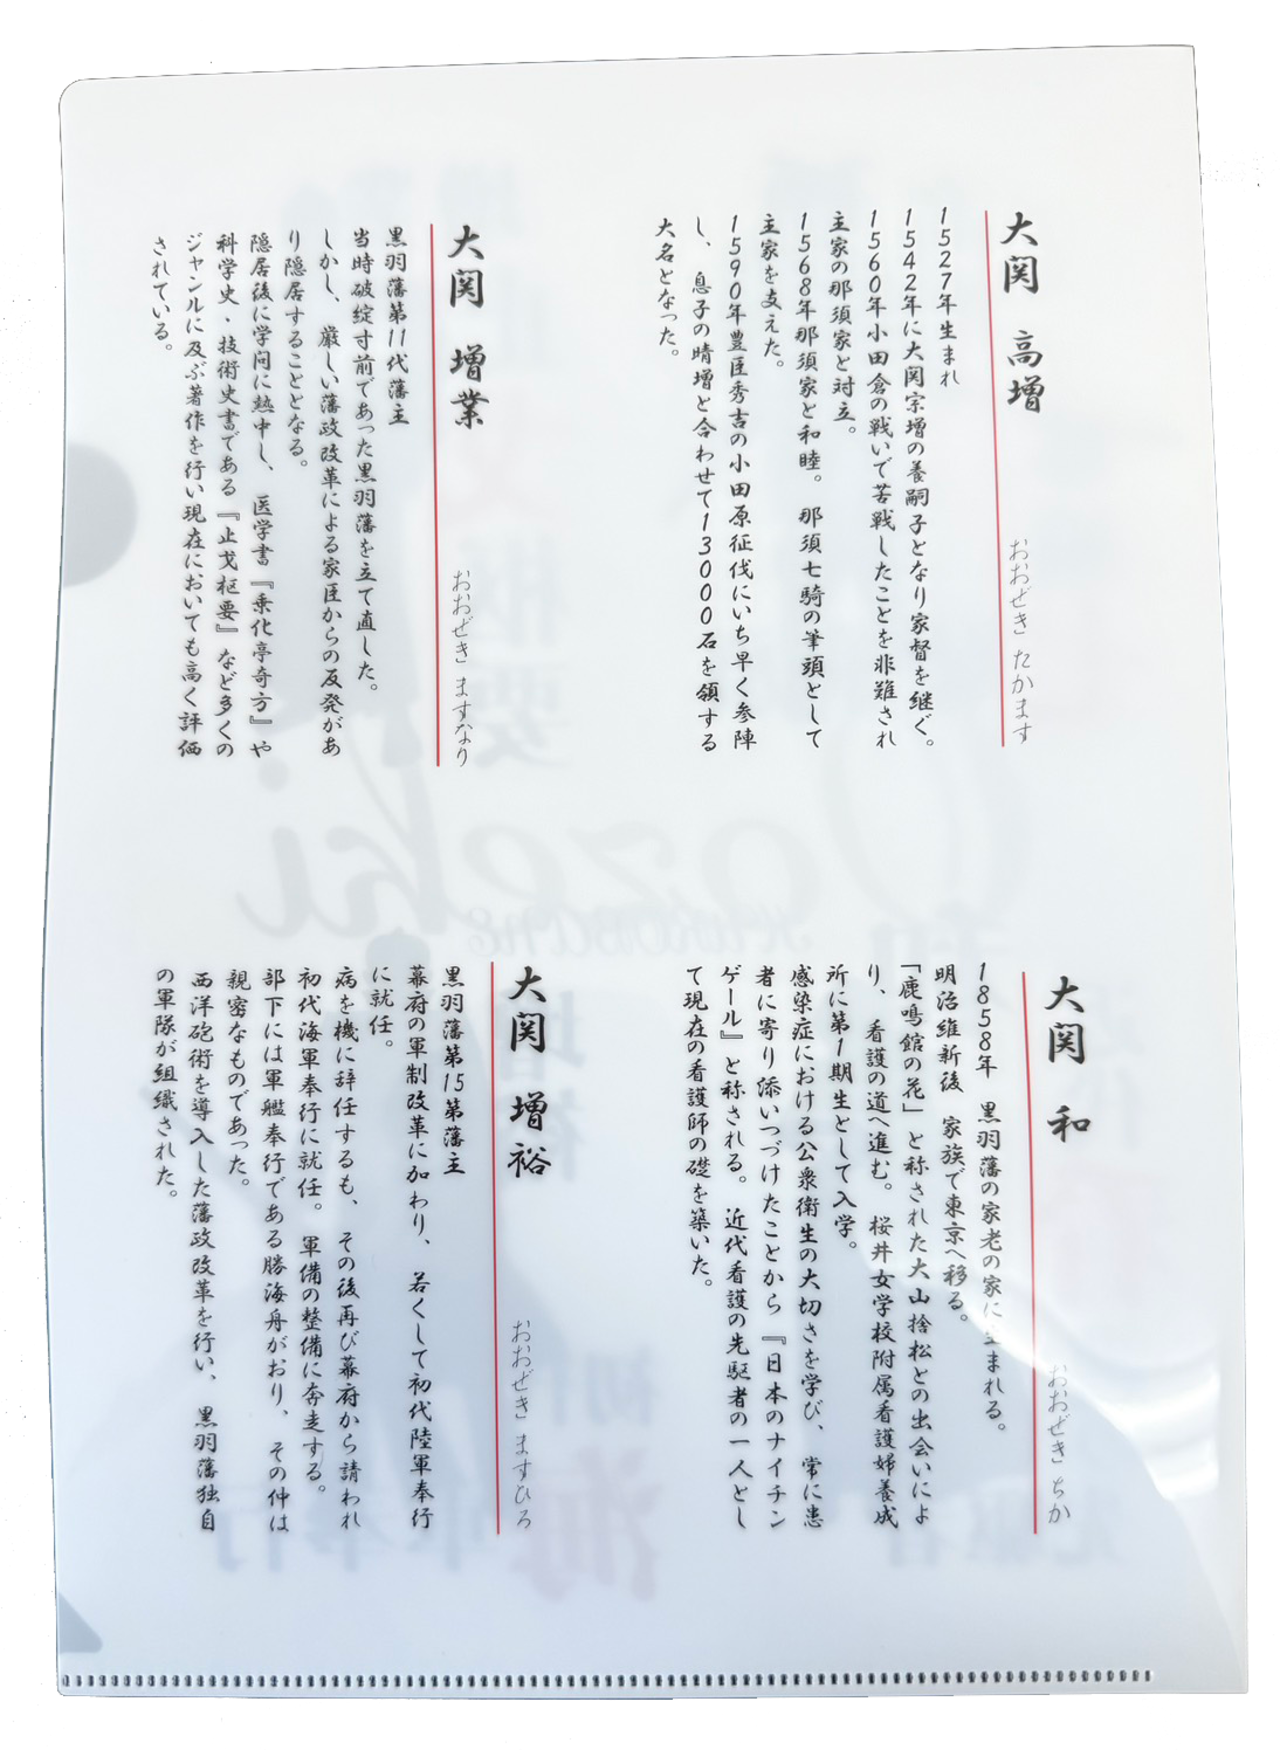 大関 高増 おおぜき たかます
1527年生まれ
1542年に大関宗増の養嗣子となり家督を継ぐ。
1560年小田倉の戦いで苦戦したことを非難され
主家の那須家と対立。
1568年那須家と和睦。 那須七騎の筆頭として
主家を支えた。
1590年豊臣秀吉の小田原征伐にいち早く参陣
し、息子の晴増と合わせて13000石を領する
大名となった。
大関 増業 おおぜき ますなり
黒羽藩第11代藩主
当時破綻寸前であった黒羽藩を立て直した。
しかし、厳しい藩政改革による家臣からの反発があ
り隠居することとなる。
隠居後に学問に熱中し、医学書『乗化亭奇方』や
科学史・技術史書である『止戈枢要』など多くの
ジャンルに及ぶ著作を行い現在においても高く評価
されている。
大関 和 おおぜき ちか
1858年 黒羽藩の家老の家に生まれる。
明治維新後 家族で東京へ移る。
「鹿鳴館の花」と称された大山捨松との出会いによ
り、看護の道へ進む。 桜井女学校附属看護婦養成
所に第1期生として入学。
感染症における公衆衛生の大切さを学び、常に患
者に寄り添いつづけたことから『日本のナイチン
ゲール』と称される。近代看護の先駆者の一人とし
て現在の看護師の礎を築いた。
大関 増裕 おおぜき ますひろ
黒羽藩第15第藩主
幕府の軍制改革に加わり、若くして初代陸軍奉行
に就任。
病を機に辞任するも、その後再び幕府から請われ
初代海軍奉行に就任。軍備の整備に奔走する。
部下には軍艦奉行である勝海舟がおり、その仲は
親密なものであった。
西洋砲術を導入した藩政改革を行い、黒羽藩独自
の軍隊が組織された。